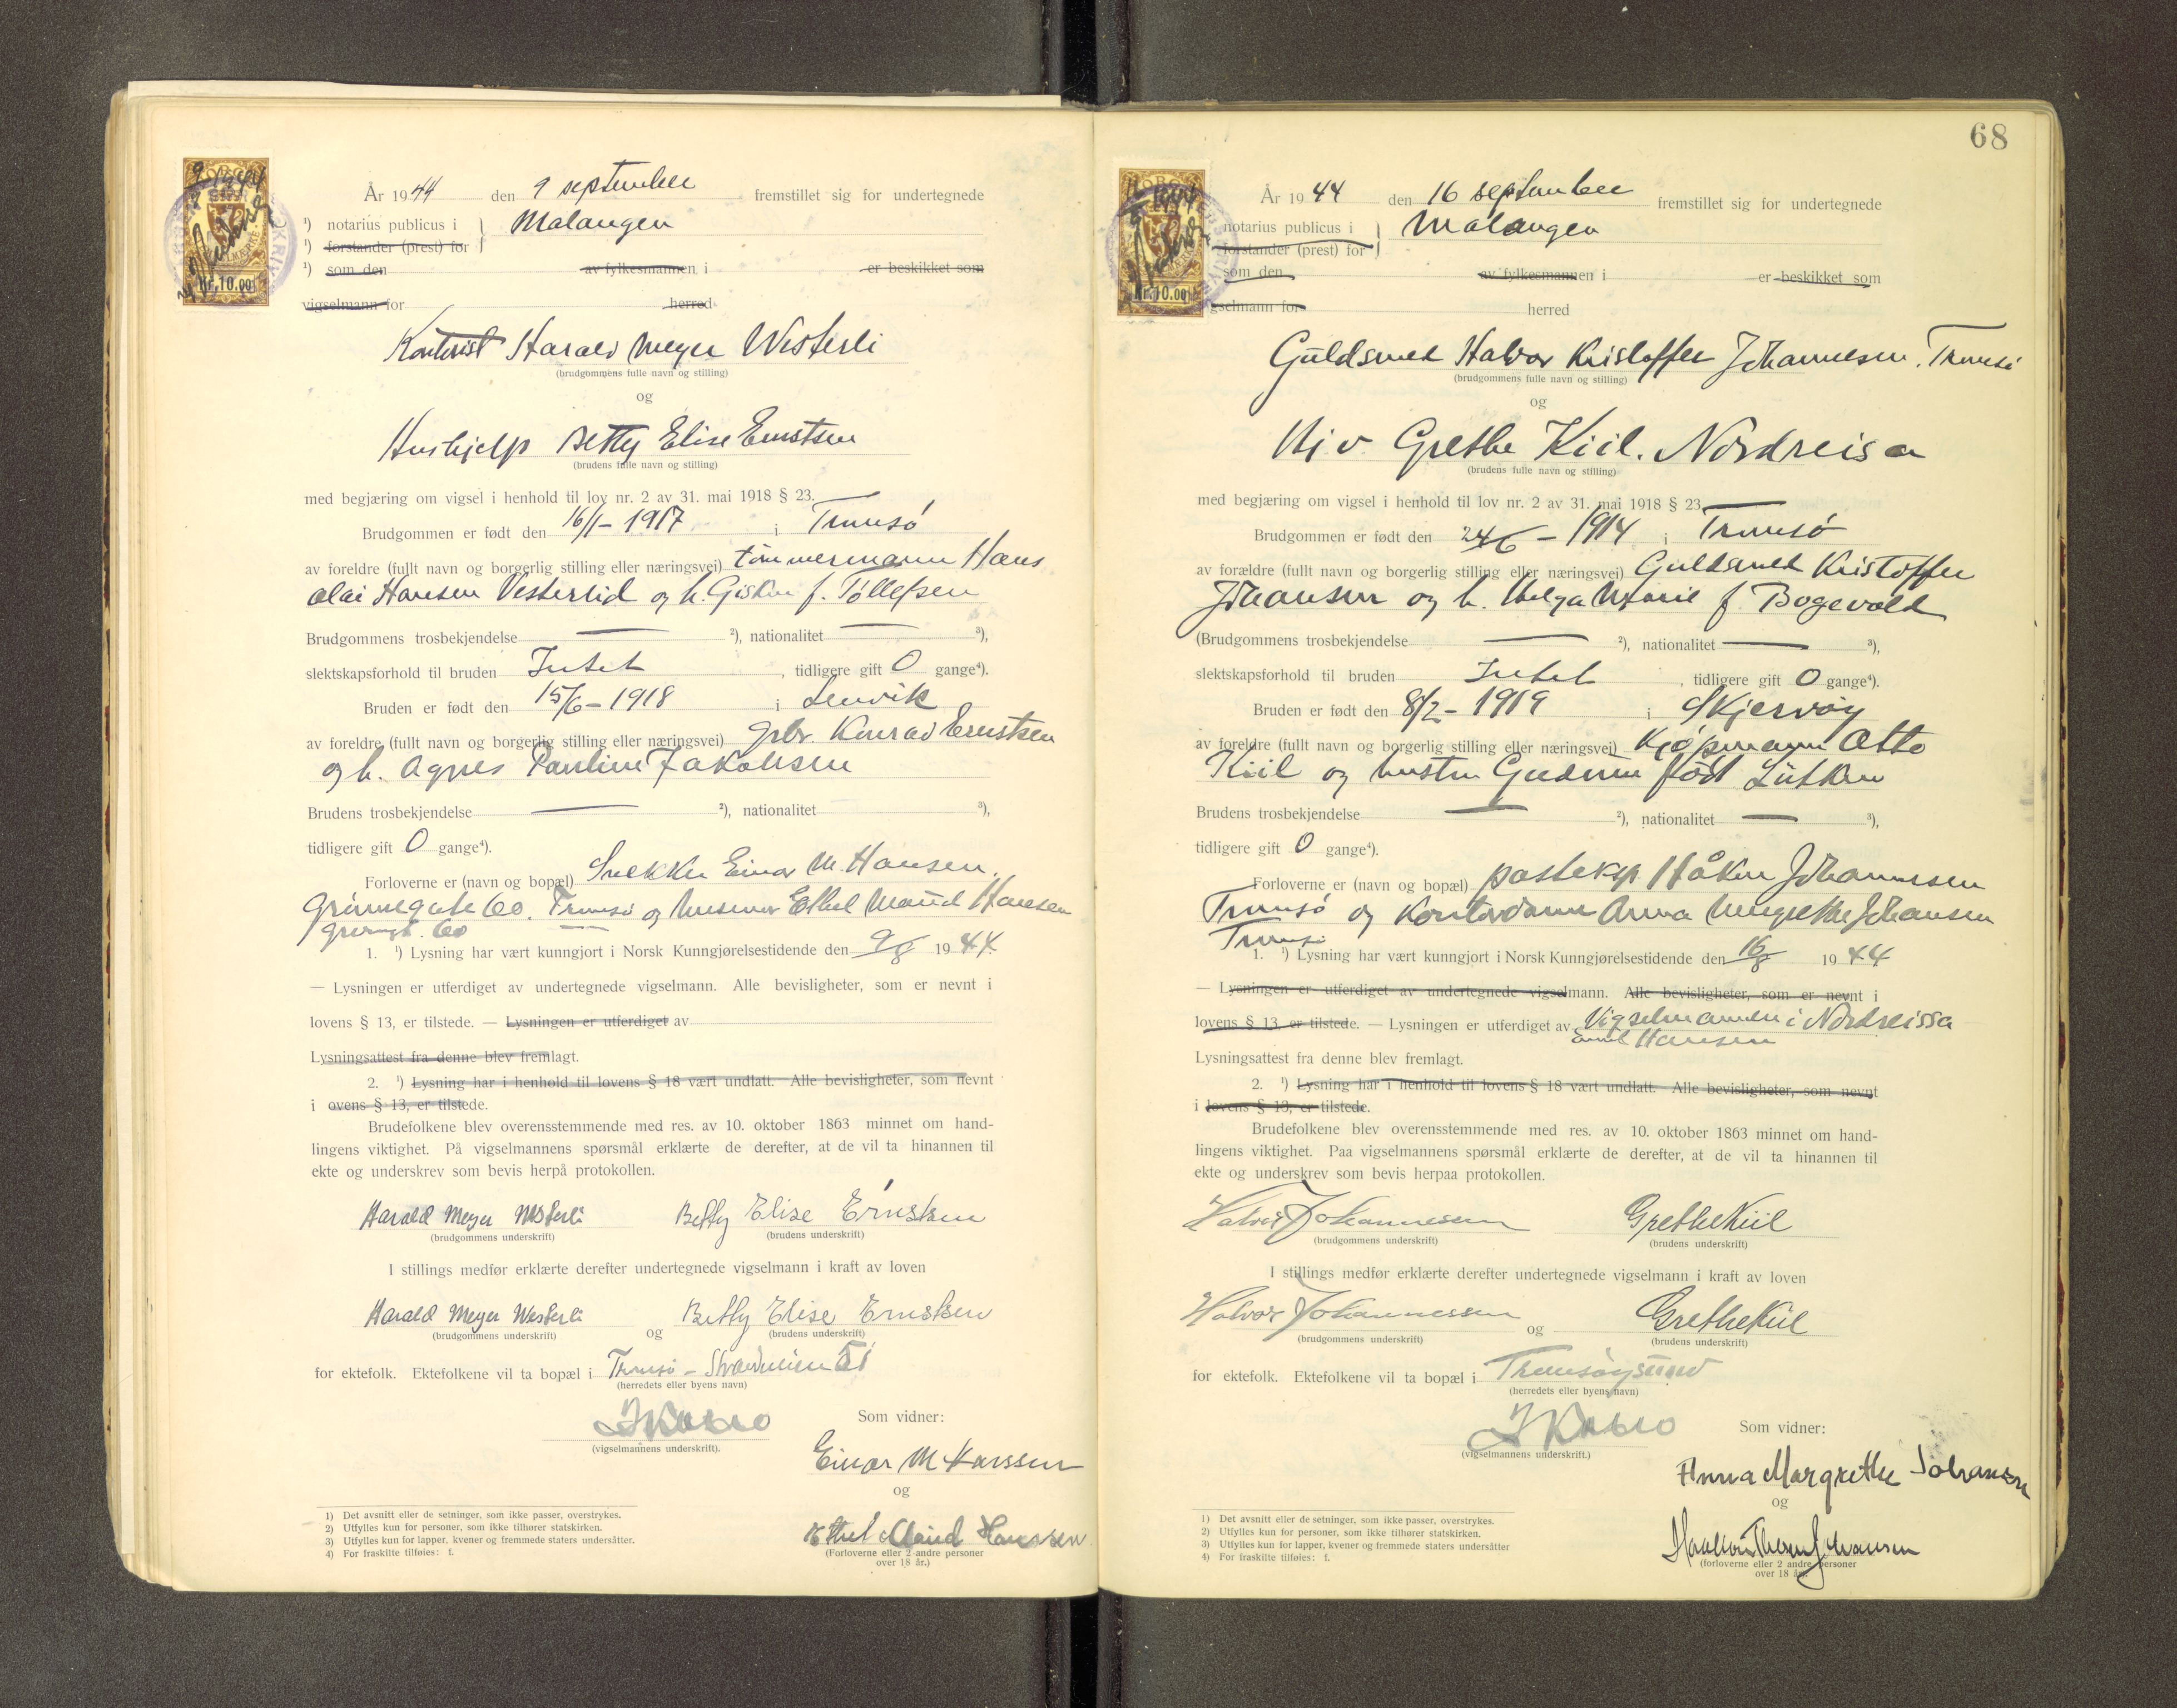 År 1944 den 9 september fremstillet sig for undertegnede
¹) notarius publicus i } Malangen
¹) forstander (prest) for
¹) som den av fylkesmannen i er beskikket som
vigselmann for herred
Kr. 10.00
Kontorist Harald Meyer Westerli
(brudgommens fulle navn og stilling)
og
Hushjelp Betty Elise Ernstsen
(brudens fulle navn og stilling)
med begjæring om vigsel i henhold til lov nr. 2 av 31. mai 1918 § 23.
Brudgommen er født den 16/1 - 1917 i Tromsö
av foreldre (fullt navn og borgerlig stilling eller næringsvei) tömmermann Hans
Olai Hansen Vesterlid og h. f. Töllefsen
Brudgommens trosbekjendelse — ²), nationalitet — ³),
slektskapsforhold til bruden Intet, tidligere gift 0 gange⁴).
Bruden er født den 15/6 - 1918 i Lenvik
av foreldre (fullt navn og borgerlig stilling eller næringsvei) gbr. Konrad Ernstsen
og h. Agnes Pauline Jakobsen
Brudens trosbekjendelse — ²), nationalitet ³),
tidligere gift 0 gange⁴).
Forloverne er (navn og bopæl) Snekker Einar M. Hansen,
Grönnegate 60. Tromsö og Ethel Maud Hansen
60
1. ¹) Lysning har vært kunngjort i Norsk Kunngjørelsestidende den 9/8 1944.
— Lysningen er utferdiget av undertegnede vigselmann. Alle bevisligheter, som er nevnt i
lovens § 13, er tilstede. — Lysningen er utferdiget av
Lysningsattest fra denne blev fremlagt.
2. ¹) Lysning har i henhold til lovens § 18 vært undlatt. Alle bevisligheter, som nevnt
i ovens § 13, er tilstede.
Brudefolkene blev overensstemmende med res. av 10. oktober 1863 minnet om hand-
lingens viktighet. På vigselmannens spørsmål erklærte de derefter, at de vil ta hinannen til
ekte og underskrev som bevis herpå protokollen.
Harald Meyer Westerli Betty Elise Ernstsen
(brudgommens underskrift) (brudens underskrift)
I stillings medfør erklærte derefter undertegnede vigselmann i kraft av loven
Harald Meyer Westerli og Betty Elise Ernstsen
(brudgommens underskrift) (brudens underskrift)
for ektefolk. Ektefolkene vil ta bopæl i Tromsö -
(herredets eller byens navn)
(vigselmannens underskrift).
Som vidner:
Einar M Hanssen
og
Ethel Maud Hanssen
(Forloverne eller 2 andre personer
over 18 år.)
1) Det avsnitt eller de setninger, som ikke passer, overstrykes.
2) Utfylles kun for personer, som ikke tilhører statskirken.
3) Utfylles kun for lapper, kvener og fremmede staters undersåtter.
4) For fraskilte tilføies: f.
68
År 1944 den 16 september fremstillet sig for undertegnede
notarius publicus i } Malangen
forstander (prest) for
som den av fylkesmannen i er beskikket som
gselmann for herred
Kr. 10.00
Guldsmed Halvor Kristoffer Johannesen. Tromsö
(brudgommens fulle navn og stilling)
og
Grethe Kiil. Nordreisa
(brudens fulle navn og stilling)
med begjæring om vigsel i henhold til lov nr. 2 av 31. mai 1918 § 23.
Brudgommen er født den 24/6 - 1914 i Tromsö
av forældre (fullt navn og borgerlig stilling eller næringsvei) Guldsmed Kristoffer
Johansen og h. Helga Marie f. Bogevold
(Brudgommens trosbekjendelse — ²), nationalitet — ³),
slektskapsforhold til bruden Intet, tidligere gift 0 gange⁴).
Bruden er født den 8/2 - 1919 i Skjervöy
av foreldre (fullt navn og borgerlig stilling eller næringsvei) Kjöpmann Otto
Kiil og hustru Gudrun född Lütken
Brudens trosbekjendelse — ²), nationalitet — ³),
tidligere gift 0 gange⁴).
Forloverne er (navn og bopæl) posteksp. Håkon Johannesen
Tromsö og Kontordame Anna Margrethe Johansen
Tromsö
1. ¹) Lysning har vært kunngjort i Norsk Kunngjørelsestidende den 16/8 1944
— Lysningen er utferdiget av undertegnede vigselmann. Alle bevisligheter, som er nevnt i
lovens § 13, er tilstede. — Lysningen er utferdiget av Vigselmannen i Nordreissa
Emil Hansen
Lysningsattest fra denne blev fremlagt.
2. ¹) Lysning har i henhold til lovens § 18 vært undlatt. Alle bevisligheter, som nevnt
i lovens § 13, er tilstede.
Brudefolkene blev overensstemmende med res. av 10. oktober 1863 minnet om hand-
lingens viktighet. Paa vigselmannens spørsmål erklærte de derefter, at de vil ta hinannen til
ekte og underskrev som bevis herpaa protokollen.
Halvor Johannessen Grethe Kiil
(brudgommens underskrift) (brudens underskrift)
I stillings medfør erklærte derefter undertegnede vigselmann i kraft av loven
Halvor Johannessen og Grethe Kiil
(brudgommens underskrift) (brudens underskrift)
for ektefolk. Ektefolkene vil ta bopæl i Tromsöysund
(herredets eller byens navn)
(vigselmannens underskrift.)
Som vidner:
Anna Margrethe Johansen
og
Johansen
(forloverne eller 2 andre personer
over 18 år.
1) Det avsnitt eller de setninger, som ikke passer, overstrykes.
2) Utfylles kun for personer, som ikke tilhører statskirken.
3) Utfylles kun for lapper, kvener og fremmede staters undersåtter
4) For fraskilte tilføies: f.